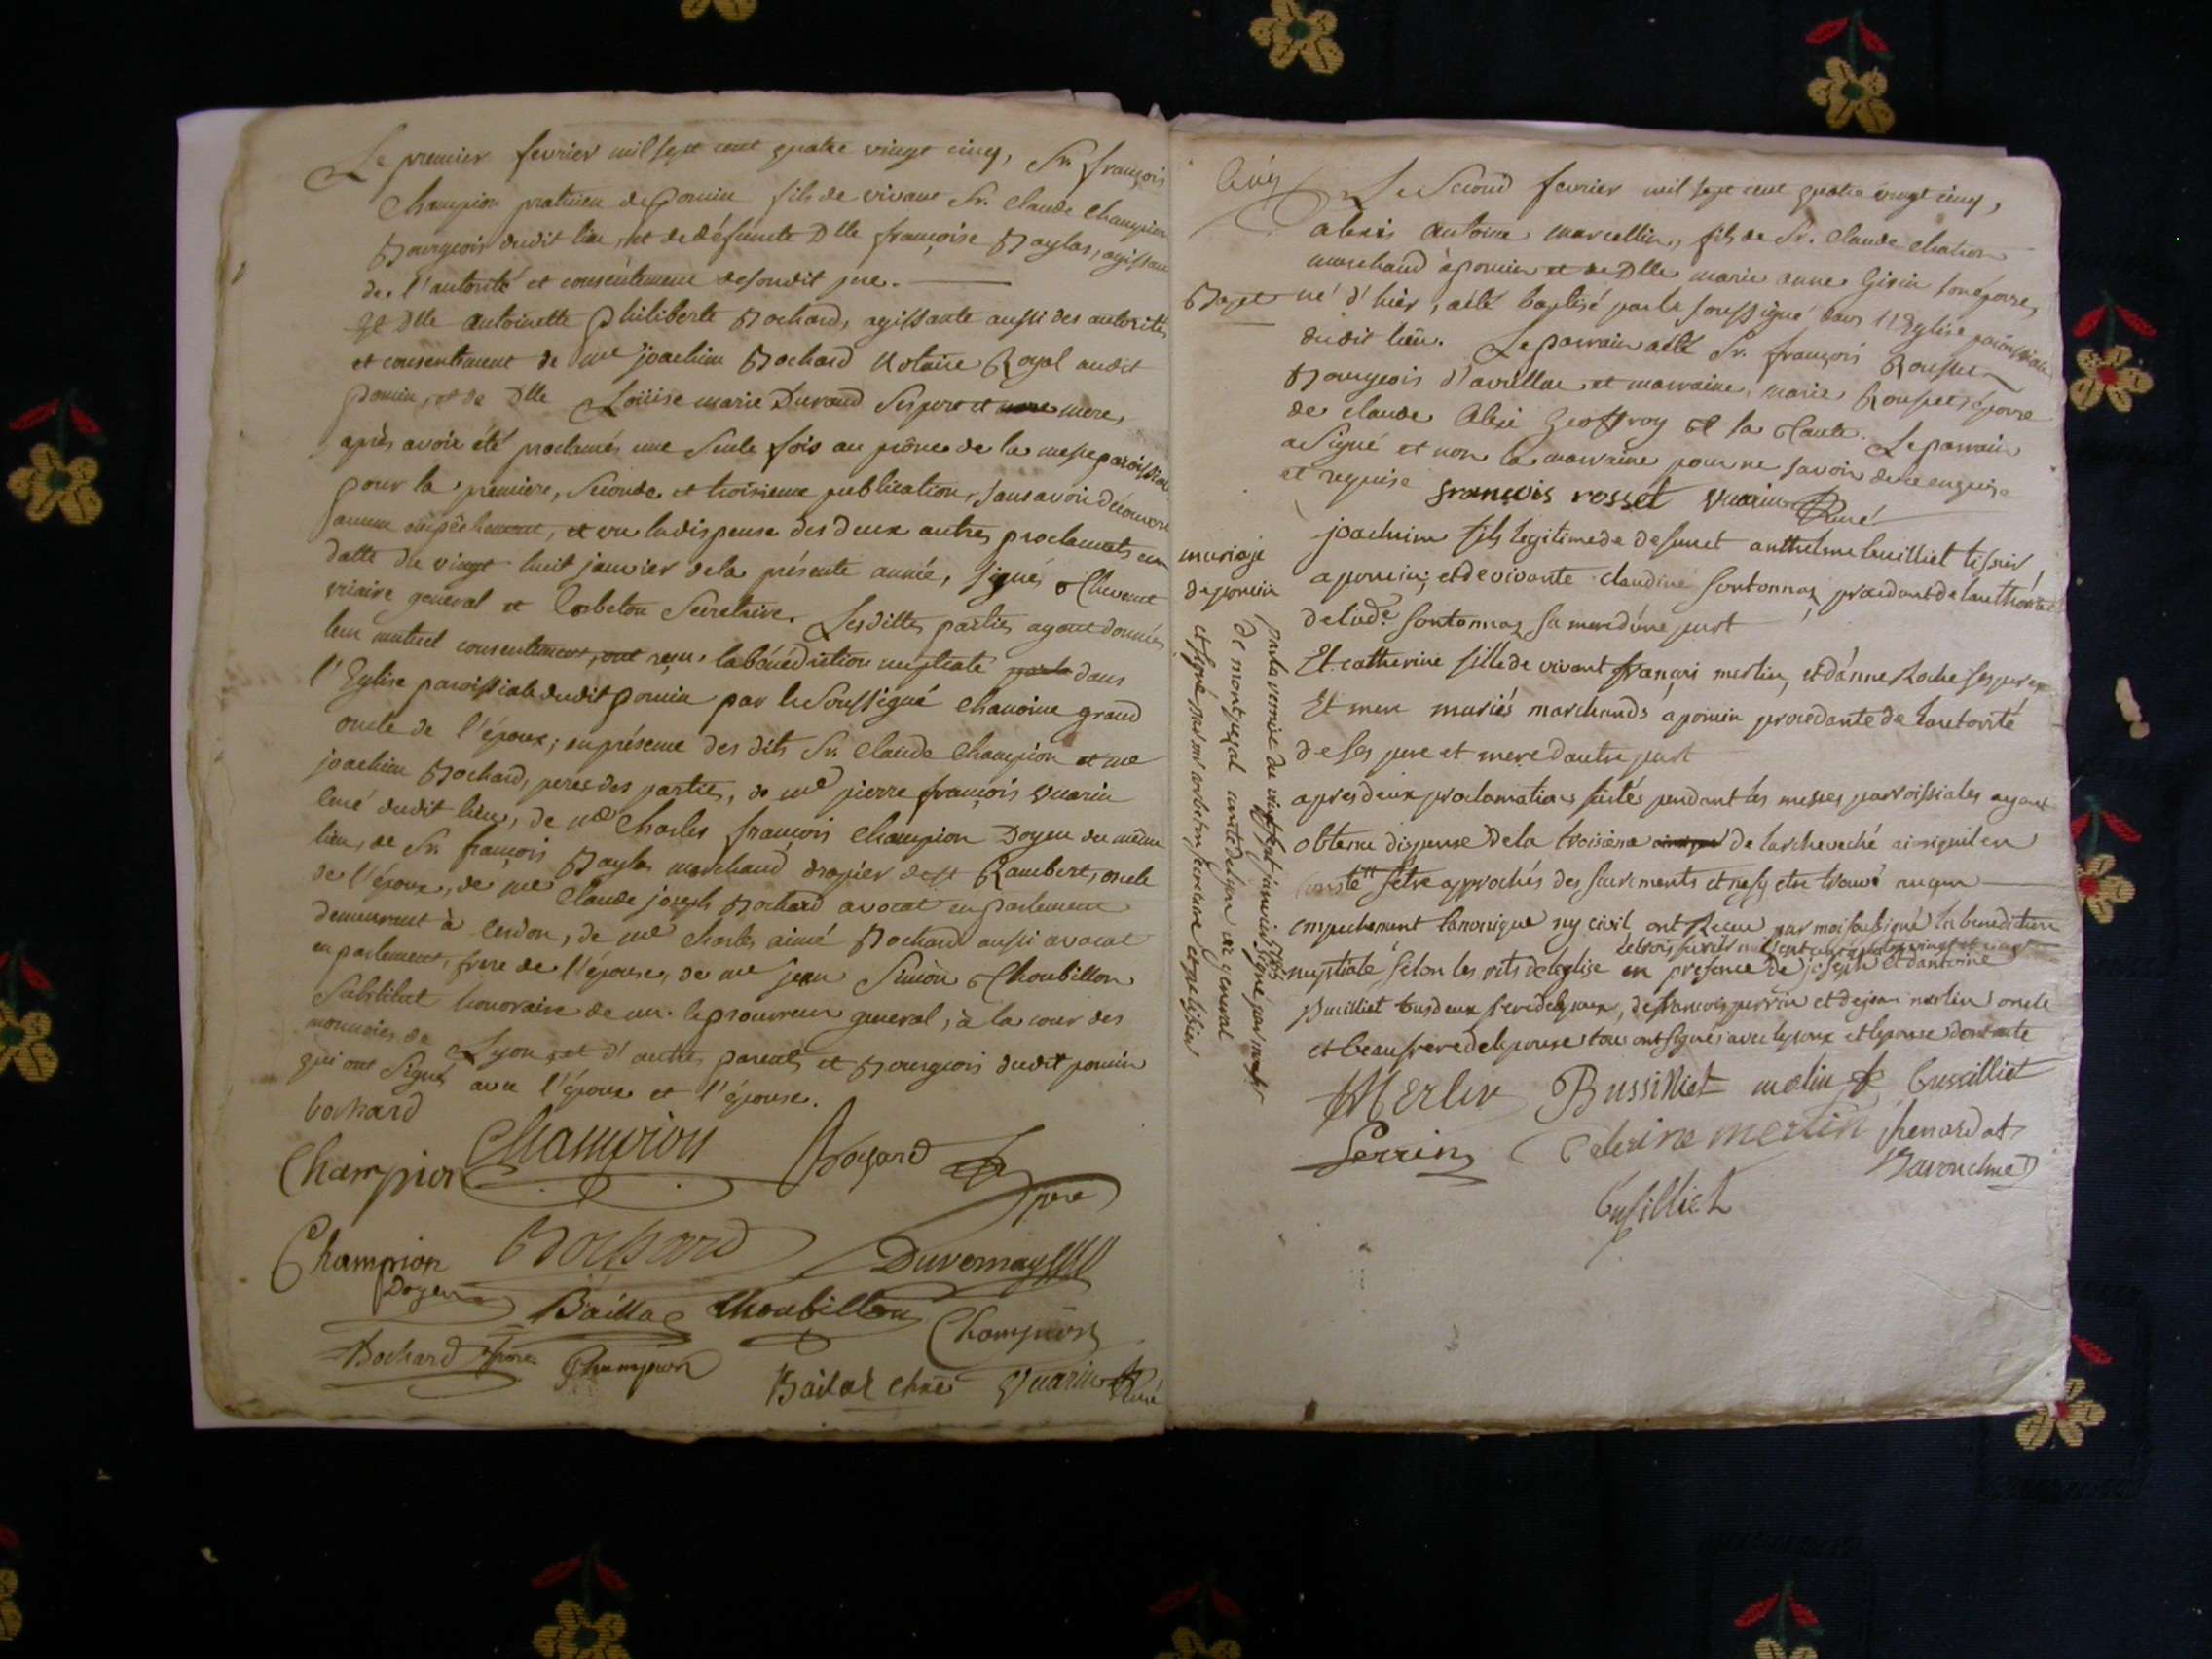 Le premier fevrier mil sept cent quatre vingt cinq, Sr. françois
Champion praticien de Poncin fils de vivant Sr. Claude Champion
Bourgeois dudit lieu, et de défuncte Dlle françoise Baylas, agissant
de l'autorité et consentement de sondit pere.
Et Dlle Antoinette Philiberte Bochard, agissante aussi des autorités
et consentement de me joachim Bochard Notaire Royal audit
Poncin, et de Dlle Loüise marie Durand ses pere et mere,
après avoir été proclamés une seule fois au prône de la messe paroissiale
pour la premiere, seconde et troisieme publication, sans avoir découvert
aucun empêchement, et vu la dispense des deux autres proclamats en
datte du vingt huit janvier de la présente année, signés
vicaire general et Corbeton Secretaire. Lesdittes parties ayant données
leur mutuel consentement, ont reçu la bénédiction nuptiale dans
l'Eglise paroissiale dudit poncin par le soussigné Chanoine grand
oncle de l'époux; en présence des dits Sr. Claude Champion et me
joachim Bochard, peres des parties, de me pierre françois Vuarin
Curé dudit lieu, de me Charles françois Champion Doyen du même
lieu, de Sr. françois Baylas marchand drapier de st Rambert, oncle
de l'époux, de me Claude joseph Bochard avocat en parlement
demeurant à Cerdon, de me Charles aimé Bochard aussi avocat
en parlement, frere de l'épouse, de me jean Simon Choubillon
Substitut honoraire de mr. le procureur general, à la cour des
monnoies de Lyon, et d'autres parents et Bourgeois dudit poncin
qui ont signés avec l'époux et l'épouse.
bochard
Champion Champion Bochard pere
Champion Doyen Bochard Duvernay
Baillas Choubillon Champion
Bochard frere Champion
Bailat Chne Vuarin Curé
Le Second fevrier mil sept cent quatre vingt cinq,
alexis antoine marcellin, fils de Sr. Claude
marchand à poncin et de Dlle marie anne son épouse,
Bapt né d'hier, a été baptisé par le soussigné dans l'Eglise paroissiale
dudit lieu. Le parrain a été Sr. françois Rousset
Bourgeois d' et marraine, marie Rousset épouse
de Claude Alexi Geoffroy de la Caute. Le parrain
a signé et non la marraine pour ne savoir de ce enquise
et requise françois rosset Vuarin Curé
mariage
de poncin
joachim fils legitime de defunct anthelme buissilliet tissier
a poncin, et de vivante claudine sontonnaz procedant de lauthorité
de lade. sontonnaz sa mere d'une part
Et catherine fille de vivant françoi merlin, et d'anne Roche ses pere
Et mere mariés marchands a poncin procedante de lautorité
de ses pere et mere dautre part
apres deux proclamations faites pendant les messes parroissiales ayant
obtenu dispense de la troisieme de larcheveché ainsi quil en
conste setre approchés des sacrements et ne sy etre trouvé aucun
empechement canonique ny civil, ont Receu par moi soubsigné la benediction
le trois fevrier mil sept cent quatre vingt et cinq
nuptiale selon les rits de leglise en presence de joseph et d'antoine
Bussilliet tous deux frere de lepoux, de francois perrin et de jean merlin oncle
et beaufrere de lepouse tous ont signés avec lepoux et lepouse dont acte
par la remise du vingt sept janvier 1785 signé par
de montjegal comte de Lyon vic general
et signé par mr corbeton secretaire
Merlin Bussilliet merlin bussilliet
Perrin Caterine merlin
busilliet